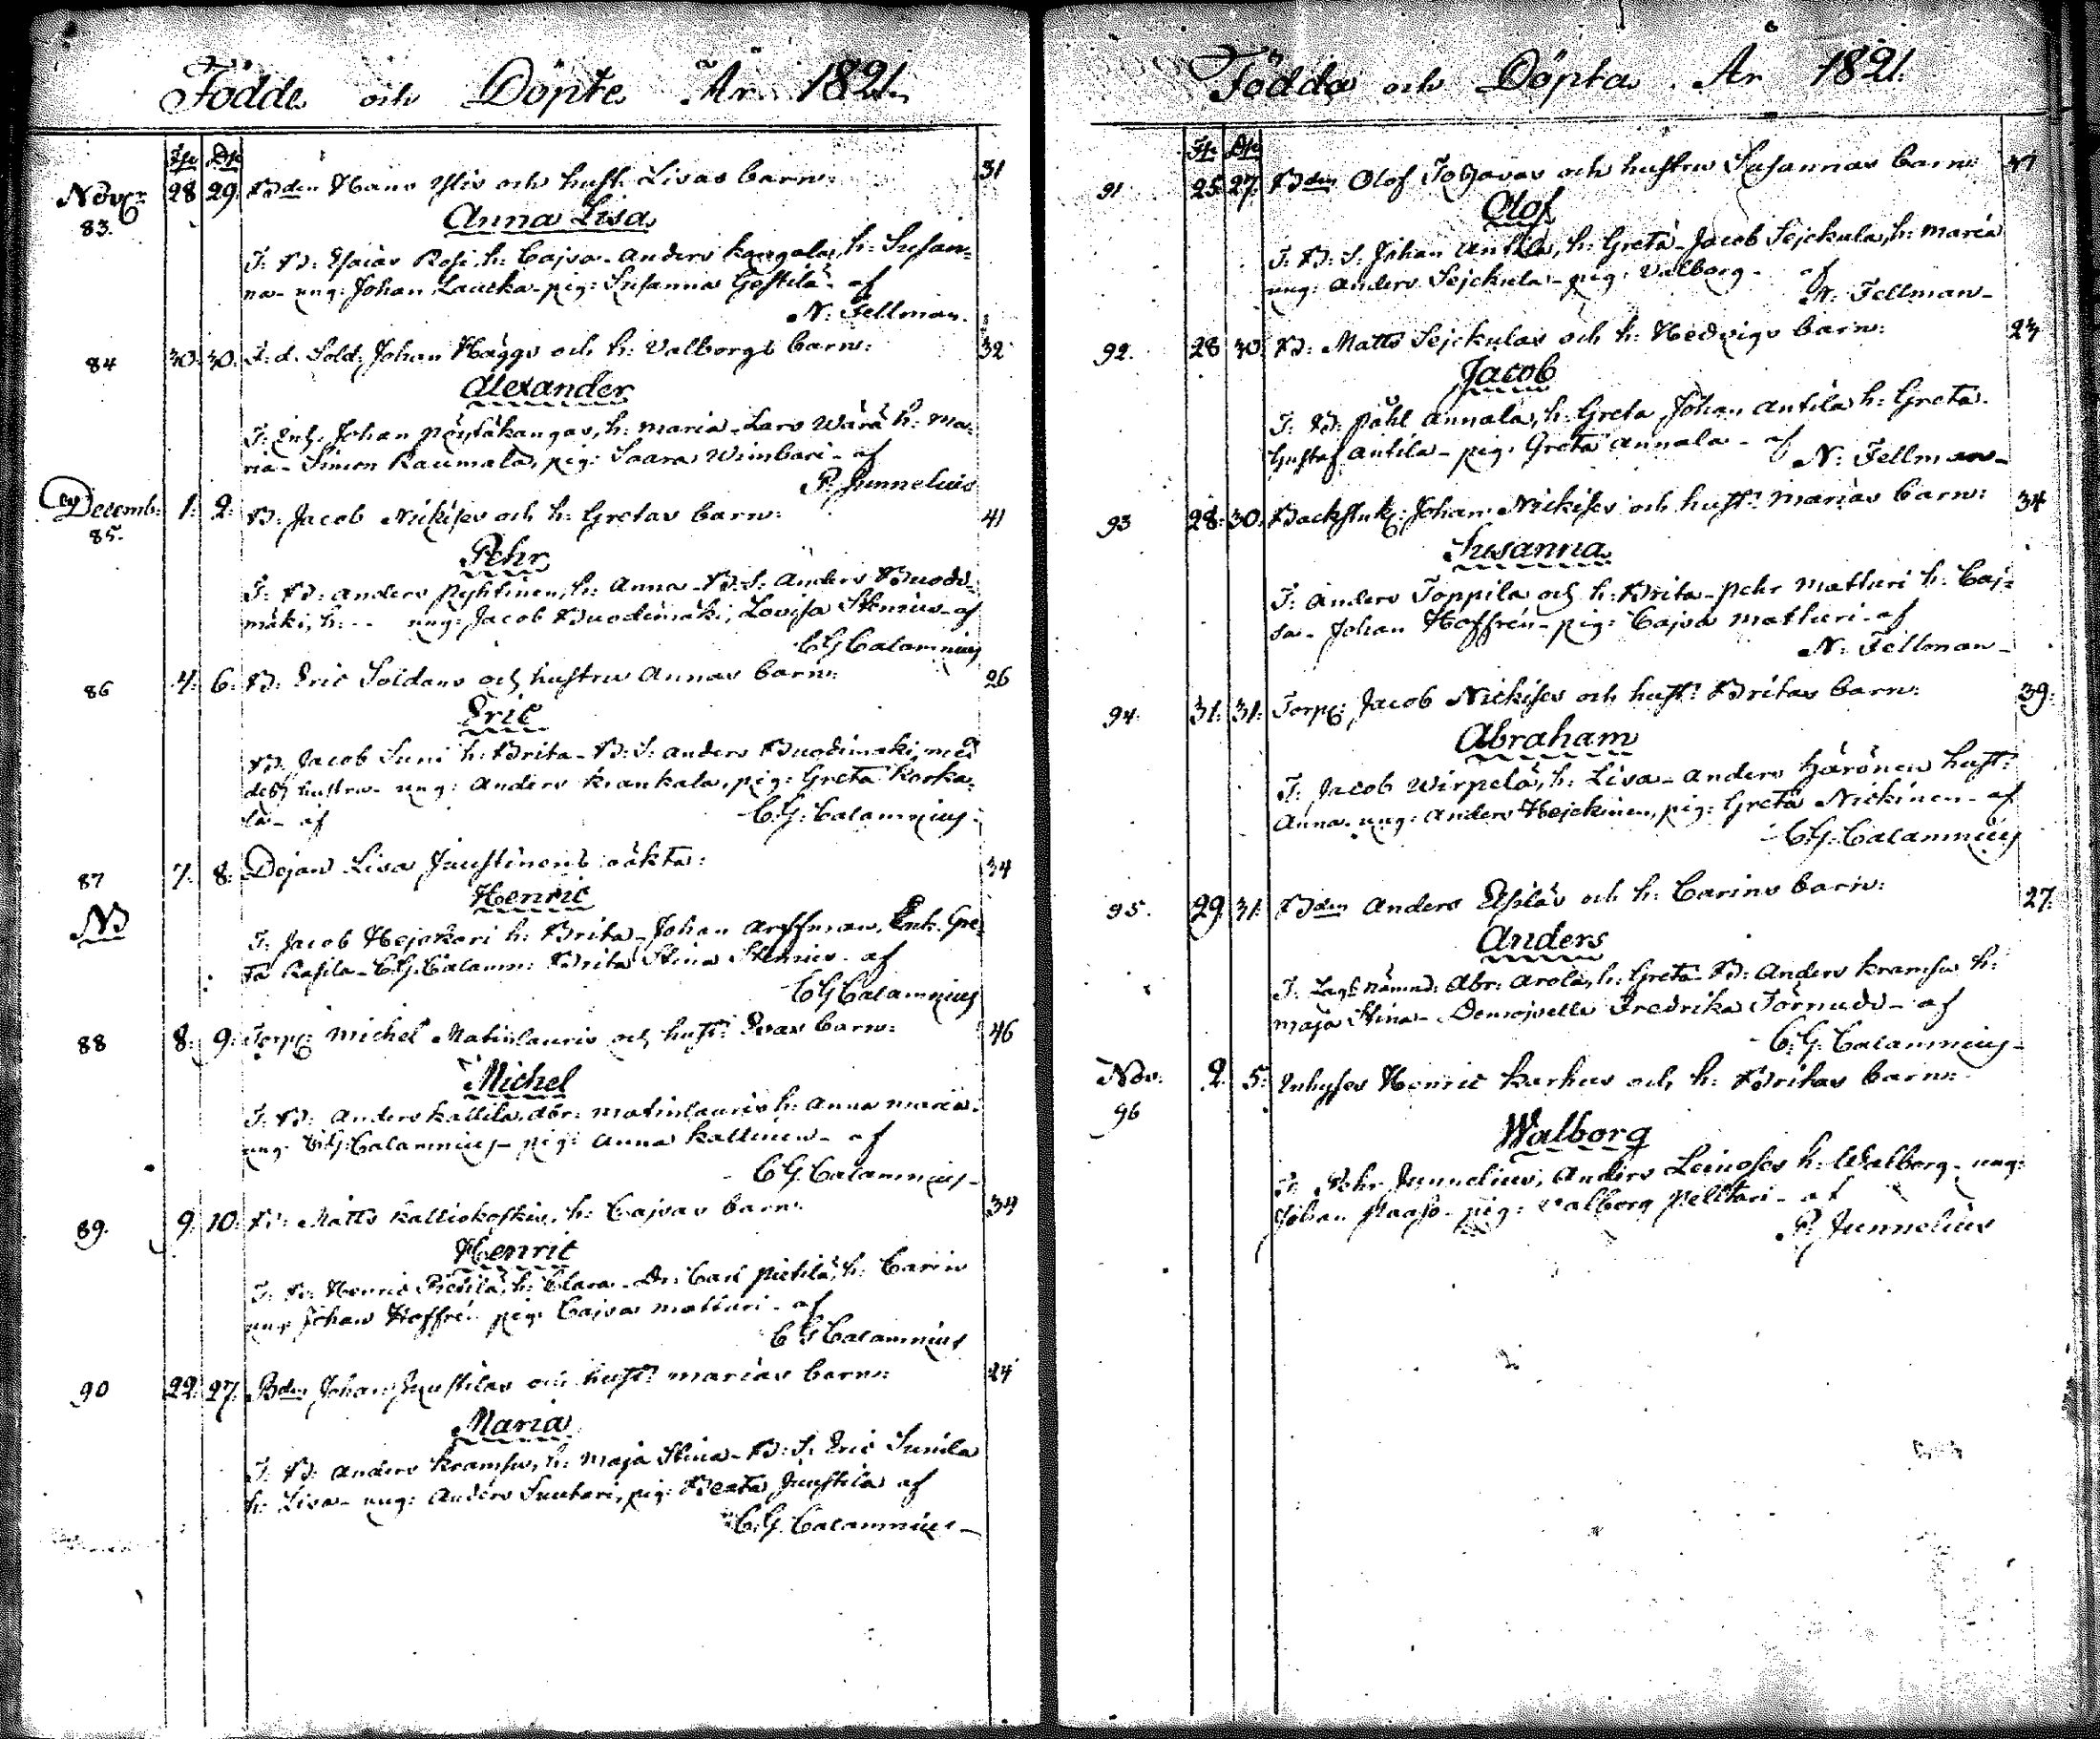 Födde och Döpte År 1821.
Fd: Dp:
Novr: 28 29. Bden Hans Ylis och hust. Lisas barn: 31
83.
Anna Lisa
F: B: Esaias Rosi h: Cajsa - Anders Kangala, h: Susan=
na - ung: Johan Laucka - pig: Susanna - af
N: Fellman.
84 30. 30. F. d. Sold: Johan Häggs och h: Valborgs barn: 32
Alexander
F: Johan Pöystäkangas, h: Maria - Lars Wärä h: Ma=
ria - Simon Raumala, pig: Saara Wimbari - af
P. Junnelius
Decemb: 1: 2: B: Jacob Nickises och h: Gretas barn: 41
85.
Pehr
F: B: Anders Pyhtinen, h: Anna - B: S: Anders Buodi=
mäki, h: - - ung: Jacob Buodimäki, Lovisa Stenius - af
C G Calamnius
86 4: 6: B: Eric Soldans och hustru Annas barn: 26
Eric
B: Jacob Suni h: Brita - B: S: Anders Buodimaki med
dess hustru - ung: Anders Krankala, pig: Greta Korka=
la - af C: G: Calamnius
87 7. 8: Dejan Lisa Juustinens oäkta: 34
NB
Henric
F: Jacob Hejckari h: Brita - Johan Arffman, Enk. Gre=
ta Rasila - C. G. Calamn: Brita Stina Stenius - af
C G Calamnius
88 8: 9: Torp: Michel Matinlauris och hust: Evas barn: 46
Michel
F: B: Anders Kallila, Abr: Matinlauris h: Anna Maria.
ung. C: G: Calamnius - pig: Anna Kallinen - af
C G. Calamnius -
89. 9: 10: B: Matts Kalliokoskis, h: Cajsas barn: 34
Henric
F: B: Henric Pietilä, h: Clara - Dr: Carl Pietilä, h: Carin
ung. Johan Hoffrén pig: Cajsa Matturi - af
C G Calamnius
90 22: 27. Bden Johan Juustilas och hust: Marias barn: 24
Maria
F: B: Anders Kramsu, h: Maja Stina - B: S: Eric Sunila
h: Lisa - ung: Anders Suutari, pig: Beata Juustila af
C. G. Calamnius -
Födda och Döpta År 1821.
Fd: Dp:
91 25. 27. Bden Olof och hustru Susannas barn:
Olof
F: B: S: Johan Antila, h: Greta - Jacob Sejckula, h: Maria
ung: Anders Sejckula - pig: Valborg - af
N: Fellman -
92. 28 30. B: Matts Sejckulas och h: Hedvigs barn: 23
Jacob
F: B: Påhl Annala, h: Greta Johan Antila h: Greta.
Gustaf Antila - pig: Greta Annala - af N: Fellman -
93 28: 30. Backstuk: Johan Nickises och hust: Marias barn: 34
Susanna
F: Anders Toppila och h: Brita - Pehr Matturi h: Caj=
sa - Johan Hoffrén - pig: Cajsa Matturi - af
N: Fellman -
94. 31: 31: Torp: Jacob Nickises och hust: Britas barn: 39:
Abraham
F: Jacob Wirpelä, h: Lisa - Anders Härönen hust:
Anna. ung: Anders Hejckinen, pig: Greta Nickinen - af
C. G. Calamnius
95. 29 31. Bden Anders och h: Carins barn: 27.
Anders
F: Lags nämnd: Abr: Arola, h: Greta - B: Anders Kramsu h:
Maja Stina - Demojselle Fredrika Törnudd - af
C. G. Calamnius -
Nov: 2. 5: Inhyses Henric Karhus och h: Britas barn:
96
Walborg
F: Pehr Junnelius, Anders Leinoses h: Walborg - ung:
Johan Paaso - pig: Valborg Pelttari - af
P. Junnelius